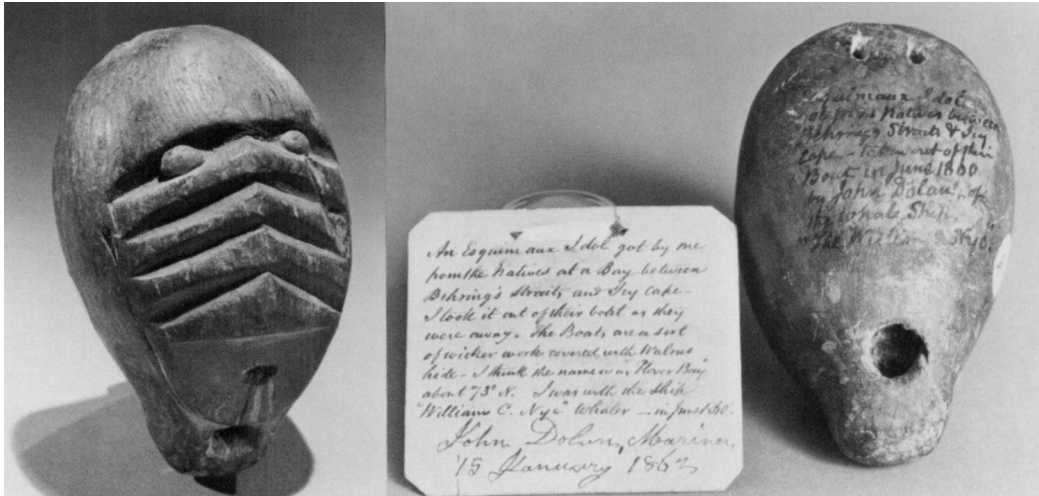 An Esquimaux Idol got by me
from the Natives at a Bay between
Behring's Straits and Icy Cape—
I took it out of their boat as they
were away. The Boats are a sort
of wicker work covered with Walrus
hide — I think the name is "Plover Bay"
about 73° N. I was with the Ship
"William C. Nye" Whaler — in June 1860.
John Dolan, Mariner,
15 January, 1862
Esquimaux Idol
got from Natives between
Behring's Straits & Icy
Cape — taken out of their
Boat in June 1860
by John Dolan, of
the Whale Ship,
"The William C. Nye"